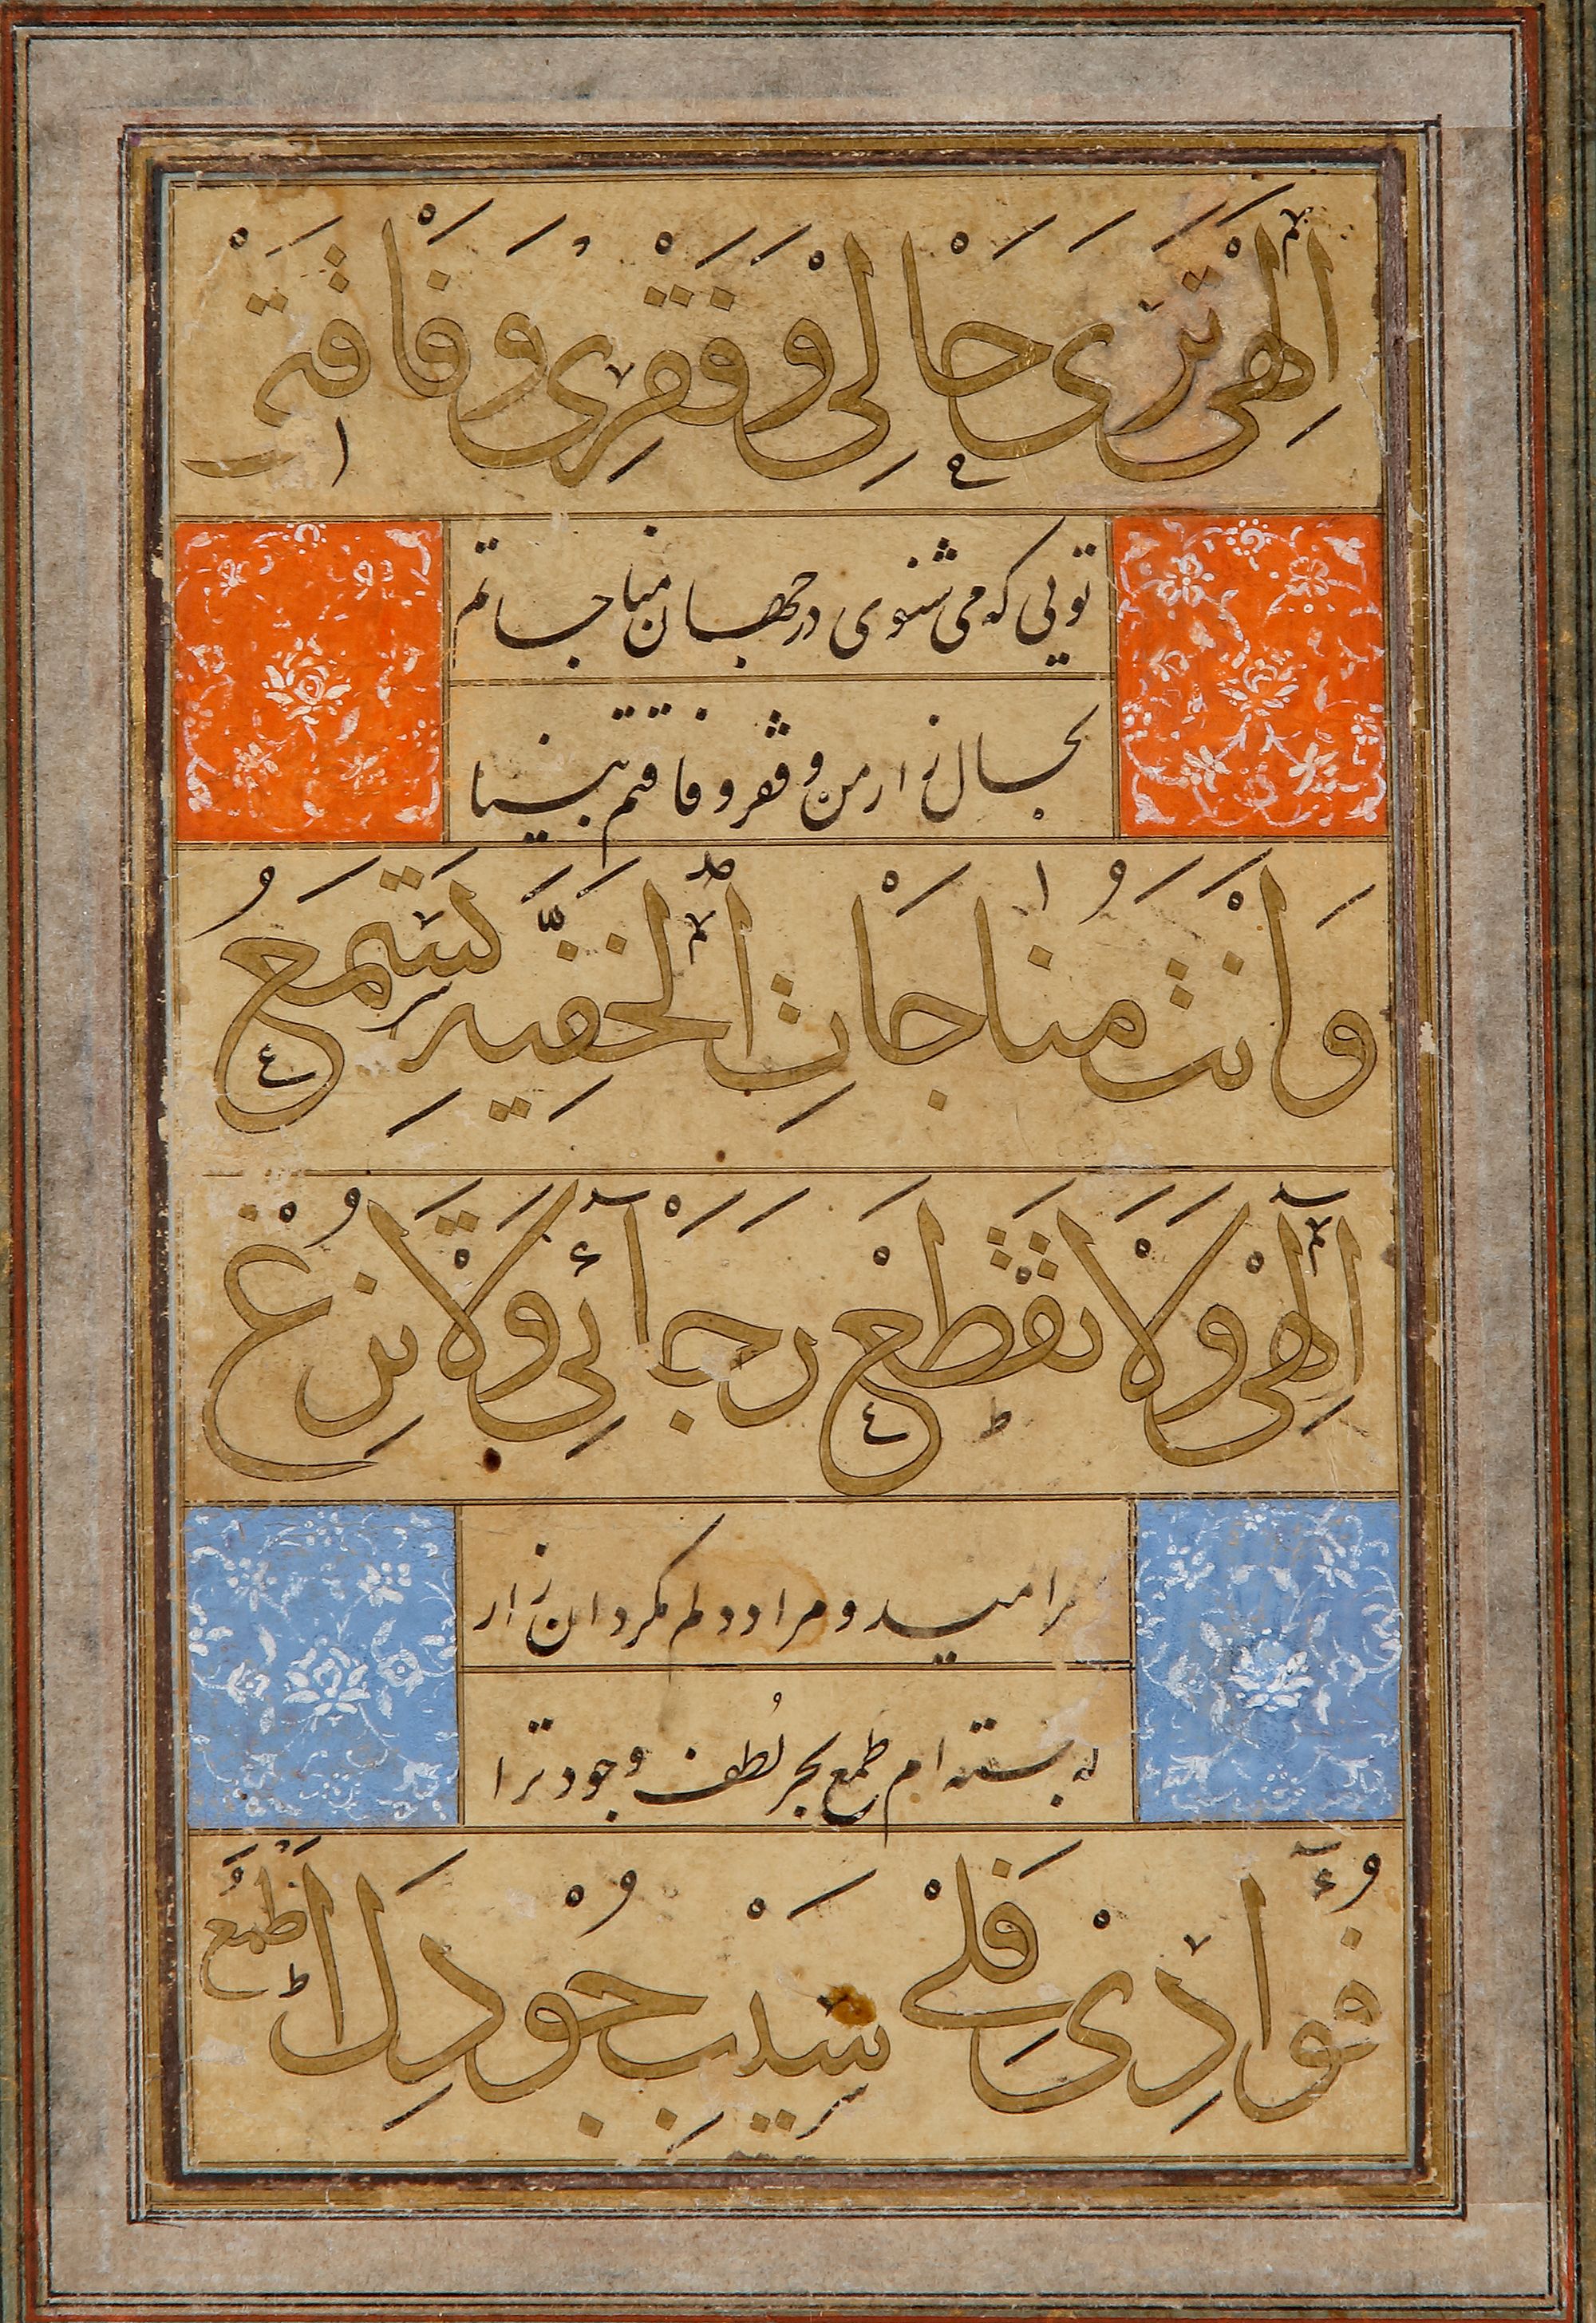 اِلٰهِیْ تَرَی حَالِیْ وَفَقْرِی وَفَاقَة
تویی که می شنوی در جهان مناجاتم
بحال زار من و فقر و فاقتم بینا
وَاَنْتَ مُنَاجَاتِ الْخَفِیَّةِ تَسْمَعُ
اِلٰهِیْ وَلَا تَقْطَعْ رَجَائِی وَلَا تُزِغْ
امید و مراد دلم مگردان زار
که بسته ام طمع بحر لُطف وجود ترا
فُؤَادِیْ فَلِیْ سَیْبِ جُوْدِكَ مَطْمَعُ